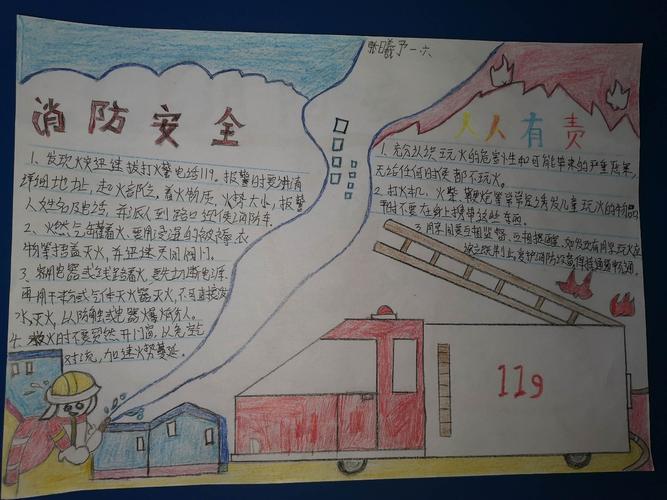 张曦予一六
消防安全
人人有责
1、发现火灾迅速拨打火警电话119。报警时要讲清
详细地址，起火部位，着火物质，火势大小，报警
人姓名及电话，并派人到路口迎候消防车。
2、燃气罐着火，要用浸湿的被褥、衣
物等捂盖灭火，并迅速关闭阀门。
3、家用电器或线路着火，要先切断电源
再用干粉或气体灭火器灭火，不可直接泼
水灭火，以防触电或电器爆炸伤人。
4、救火时不要贸然开门窗，以免空气
对流，加速火势蔓延。
1、充分认识玩火的危害性和可能带来的严重后果，
无论任何时候都不玩火。
2、打火机、火柴、鞭炮等常常是诱发儿童玩火的物品
平时不要在身上携带这些东西。
3、同学间要互相监督，互相提醒，如发现有同学玩火应
立即制止，爱护消防设备保持通道畅通
119